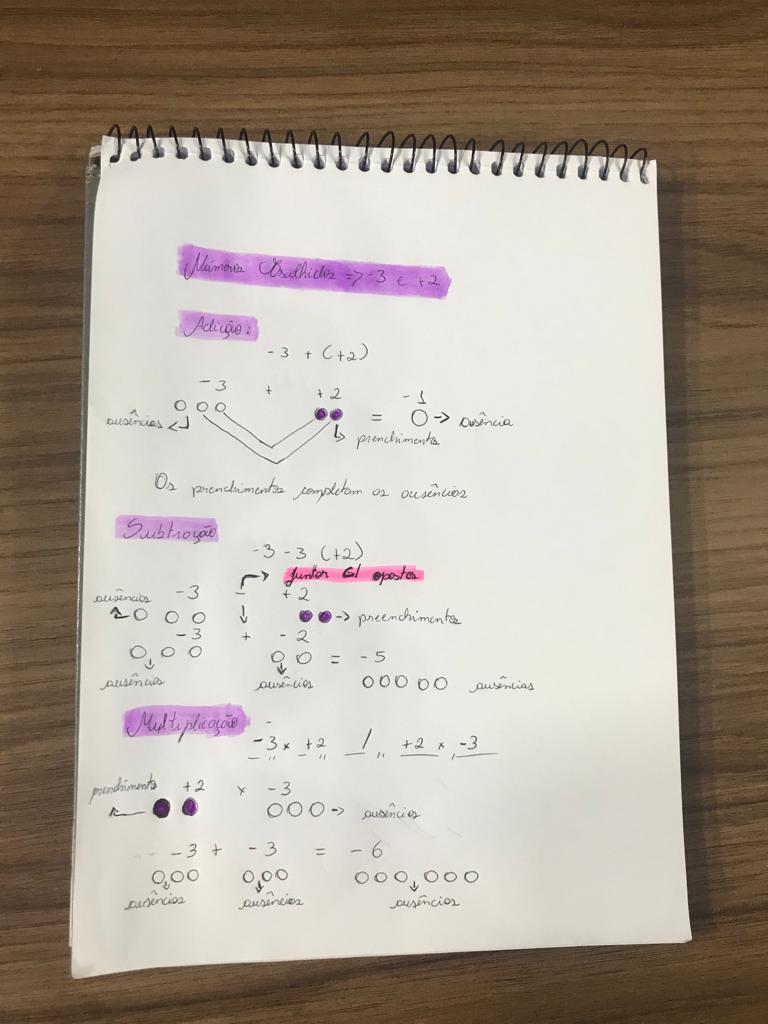 Números Escolhidos => -3 e +2
Adição:
-3 + (+2)
-3 + +2 -1
ausências = -> ausência
prenchimentos
Os prenchimentos completam as ausências
Subtração
-3 -3 (+2)
Juntar c/ opostos
ausências -3 - +2
-> preenchimentos
-3 + -2
= -5
ausências ausências ausências
Multiplicação
-3 x +2 / +2 x -3
prenchimentos +2 x -3
-> ausências
-3 + -3 = -6
ausências ausências ausências